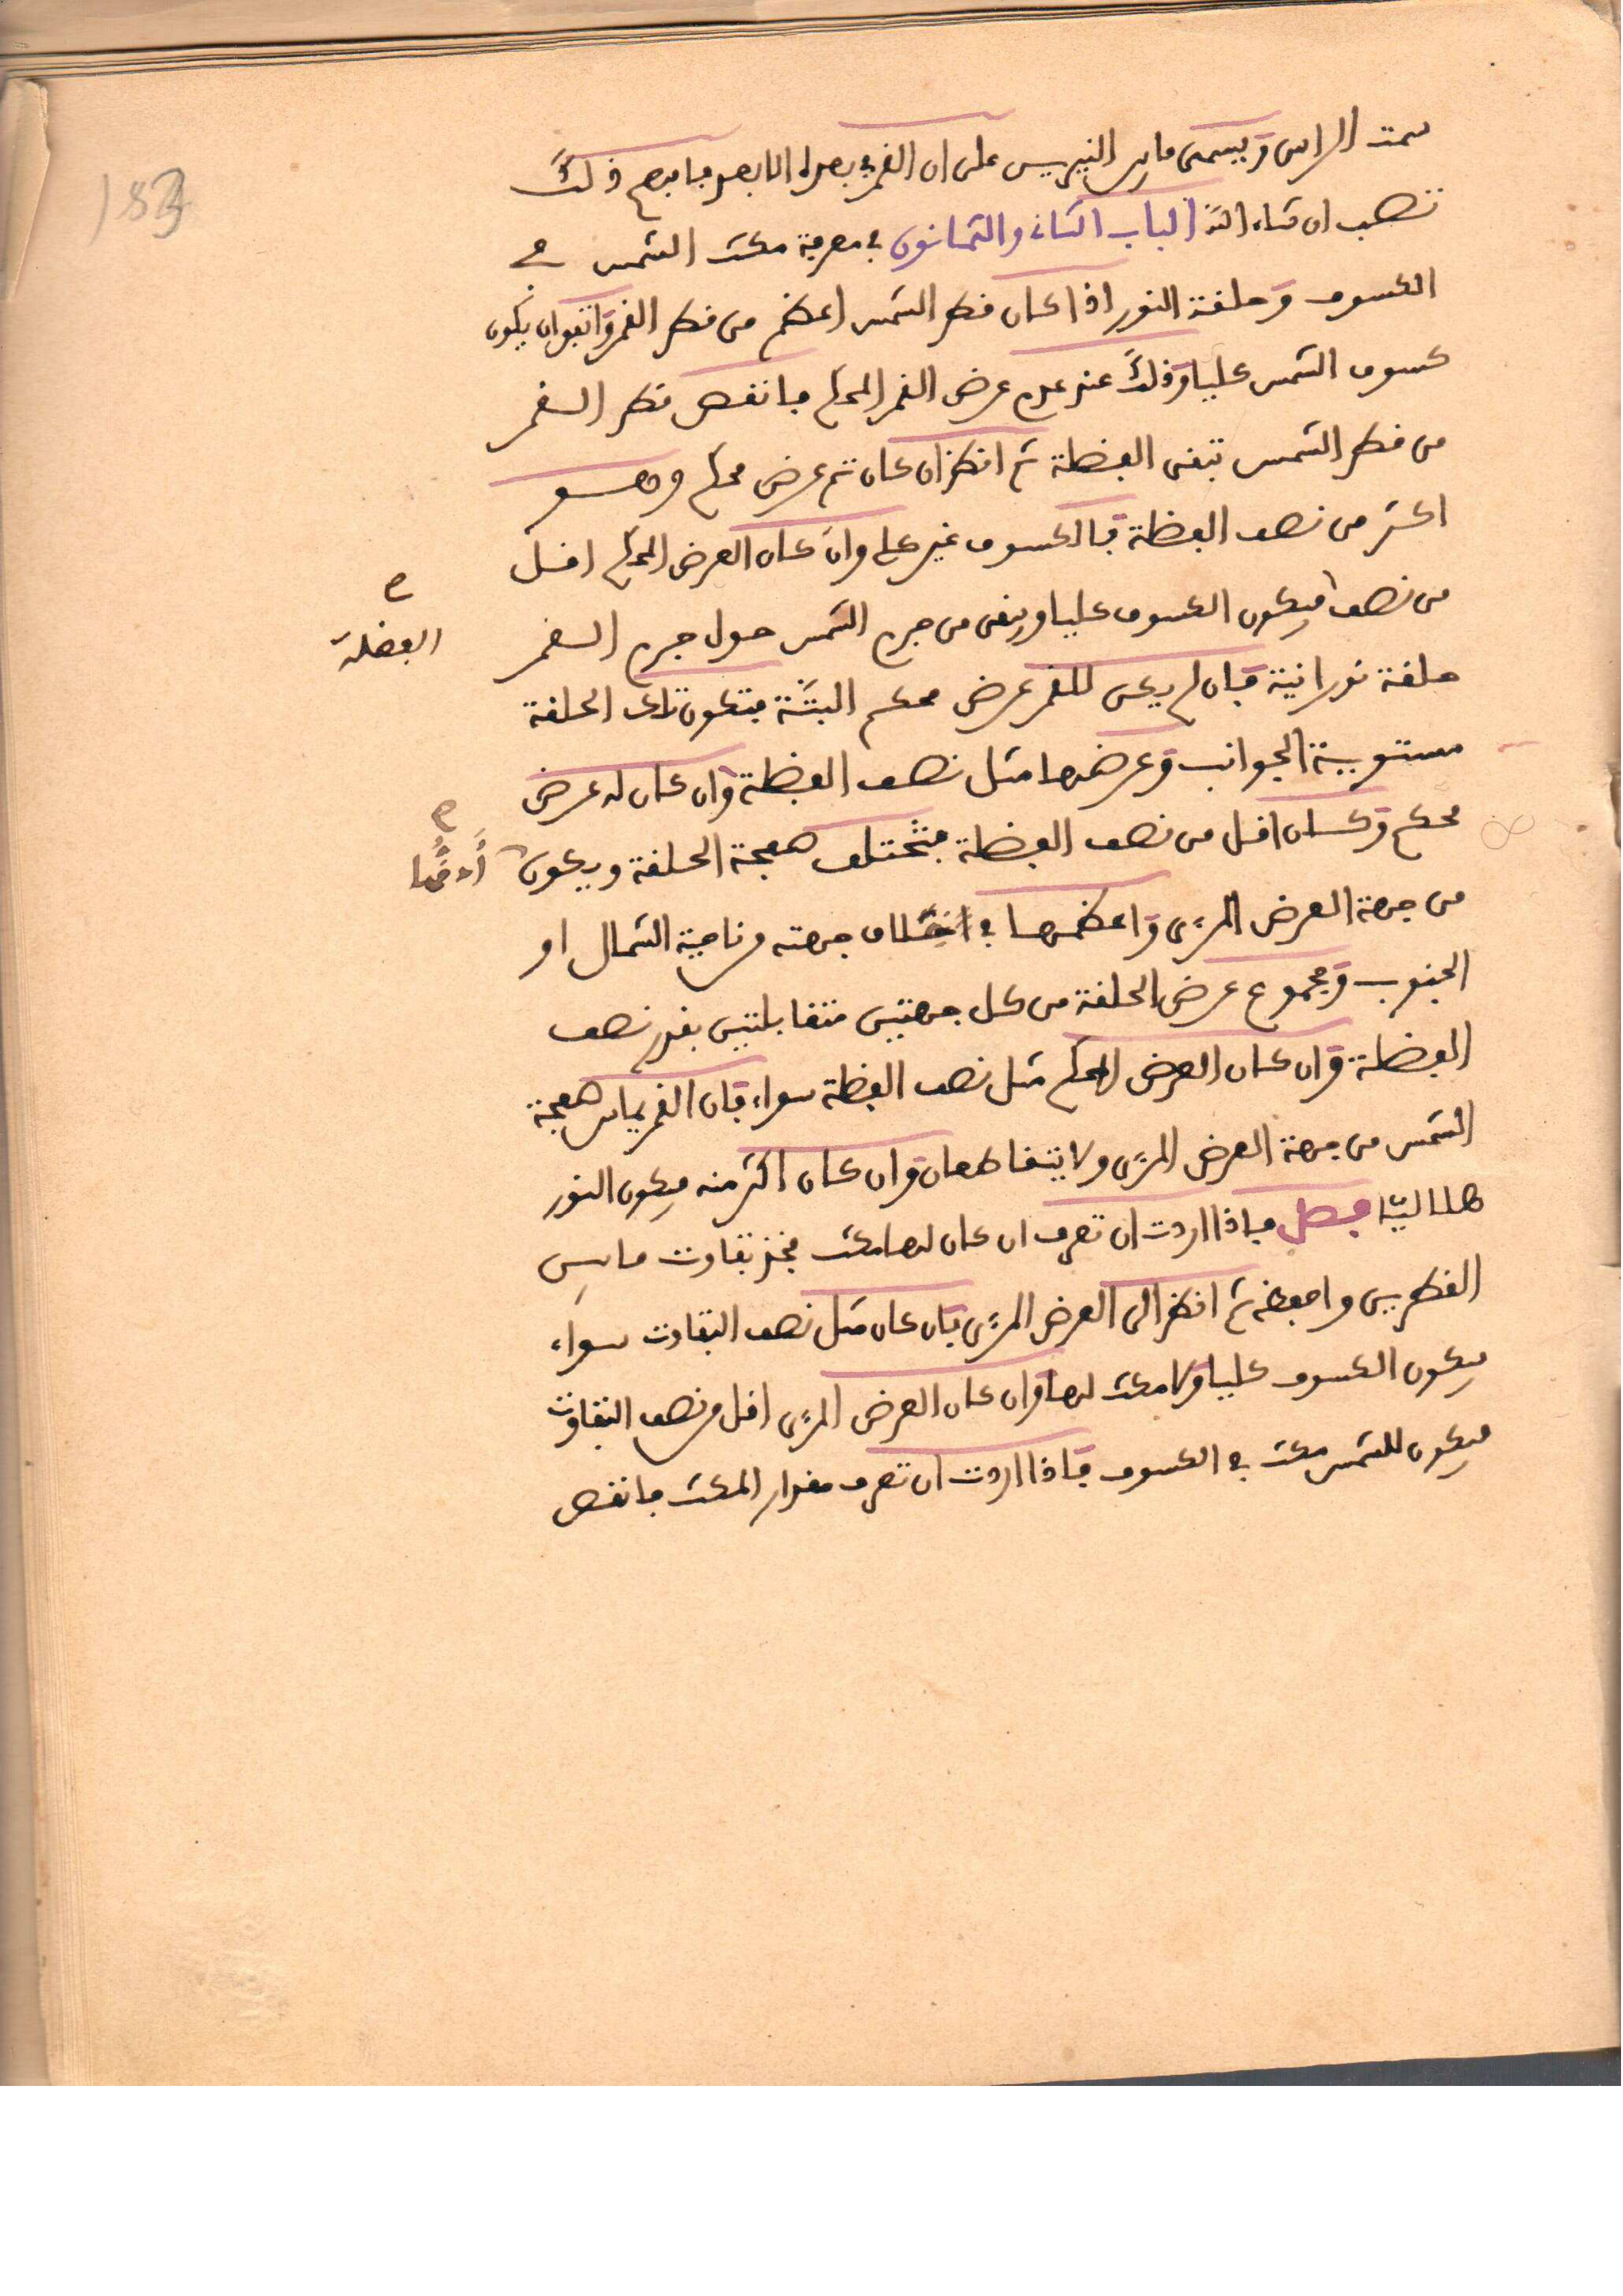 183
سمت الراس ويسمى مابين النيرين على ان القمر في بعده الابعد فافهم ذلك
تصب ان شاء الله الباب الثاني والثمانون في معرفة مكث الشمس في
الكسوف وحلقة النور اذا كان قطر الشمس اعظم من قطر القمر واتفق ان يكون
كسوف الشمس كليا وذلك عند عدم عرض القمر المحكم فانقص قطر القمر
من قطر الشمس تبقى الفضلة ثم انظر ان كان ثم عرض محكم وهو
اكثر من نصف الفضلة فالكسوف غير كلي وان كان العرض المحكم اقل
من نصف فيكون الكسوف كليا ويبقى من جرم الشمس حول جرم القمر
الفضلة
حلقة نورانية فان لم يكن للقمر عرض محكم البتة فتكون تلك الحلقة
مستوية الجوانب وعرضها مثل نصف الفضلة وان كان له عرض
محكم وكان اقل من نصف الفضلة فتختلف صفحة الحلقة ويكون ادقها
من جهة العرض المرئي واعظمها في اختلاف جهته من ناحية الشمال او
الجنوب ومجموع عرض الحلقة من كل جهتين متقابلتين بقدر نصف
الفضلة وان كان العرض المحكم مثل نصف الفضلة سواء فان القمر يماس صفحة
الشمس من جهة العرض المرئي ولا يتقاطعان وان كان اكثر منه فيكون النور
هلاليا فصل فاذا اردت ان تعرف ان كان لها مكث فخذ تفاوت مابين
القطرين واحفظه ثم انظر الى العرض المرئي فان كان مثل نصف التفاوت سواء
فيكون الكسوف كليا ولا مكث لها وان كان العرض المرئي اقل من نصف التفاوت
فيكون للشمس مكث في الكسوف فاذا اردت ان تعرف مقدار المكث فانقص